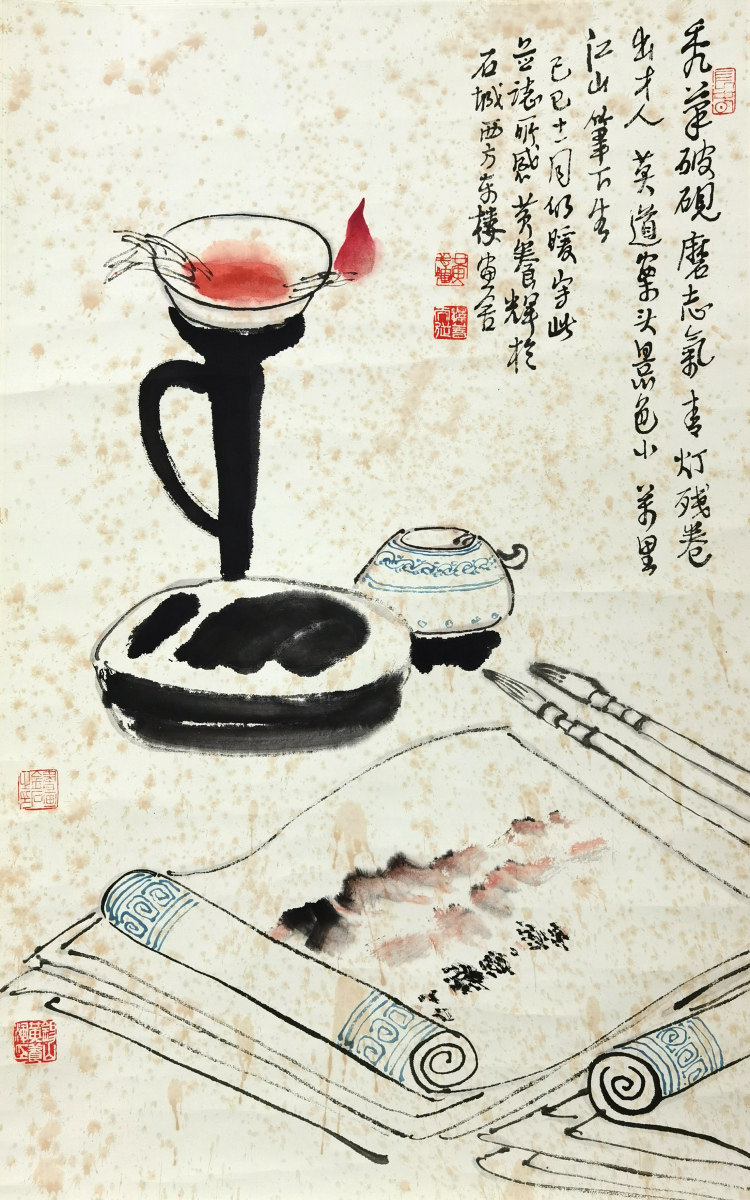 秃筆破砚磨志氣青灯残卷
出才人莫道案头景色小萬里
江山筆下生
己巳十一月仍暖写此
並誌所感黄養辉於
石城西方东楼画舍